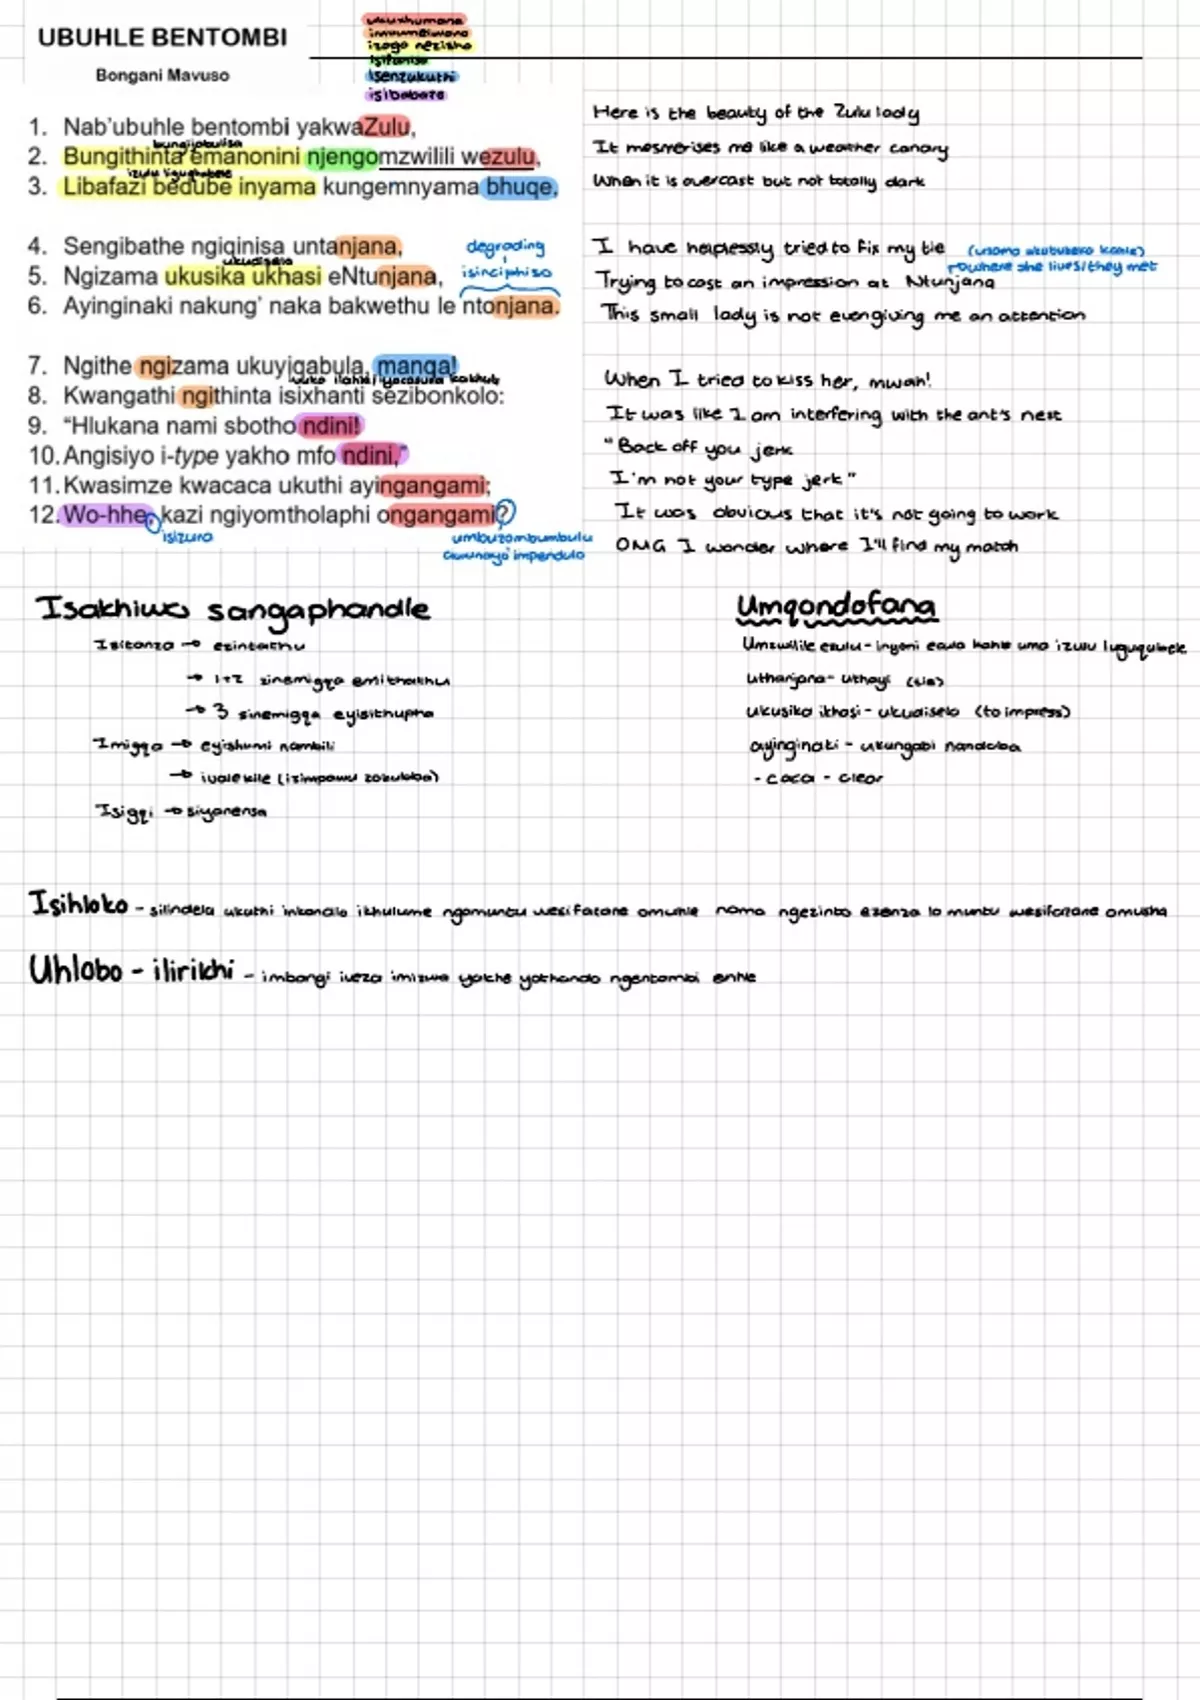 UBUHLE BENTOMBI
Bongani Mavuso
ukuxhumana
imvumelwano
izaga nezisho
isifaniso
isenzukuthi
isibabazo
1. Nab'ubuhle bentombi yakwaZulu,
bungijabulisa
2. Bungithinta emanonini njengomzwilili wezulu,
izulu liguqubele
3. Libafazi bedube inyama kungemnyama bhuqe,
4. Sengibathe ngiqinisa untanjana,
ukudisela
5. Ngizama ukusika ukhasi eNtunjana,
degrading
isinciphiso
6. Ayinginaki nakung' naka bakwethu le ntonjana.
7. Ngithe ngizama ukuyiqabula, manqa!
8. Kwangathi ngithinta isixhanti sezibonkolo:
9. "Hlukana nami sbotho ndini!
10. Angisiyo i-type yakho mfo ndini,"
11. Kwasimze kwacaca ukuthi ayingangami;
12. Wo-hhe, kazi ngiyomtholaphi ongangami?
isizura
umbuzombumbulu
awunayo impendulo
Here is the beauty of the Zulu lady
It mesmerises me like a weather canary
When it is overcast but not totally dark
I have helplessly tried to fix my tie
where she lives/they met
Trying to cast an impression at Ntunjana
This small lady is not even giving me an attention
When I tried to kiss her, mwah!
It was like I am interfering with the ant's nest
"Back off you jerk
I'm not your type jerk"
It was obvious that it's not going to work
OMG I wonder where I'll find my match
Isakhiwo sangaphandle
Isitanza → ezintathu
→ 1+2 zinemigqa emithathu
→ 3 sinemigqa eyisithupha
Imigqa → eyishumi nambili
→ ivalekile (izimpawu zokuloba)
Isigqi → siyanensa
Umqondofana
Umzwilile ezulu - inyoni ecula kahle uma izulu luguqubele
uthanjana - uthayi (tie)
ukusika ikhasi - ukudisela (to impress)
ayinginaki - ukungabi nandaba
- caca - clear
Isihloko - silindela ukuthi inkondlo ikhulume ngomuntu wesifazane omuhle noma ngezinto ezenza lo muntu wesifazane omusha
Uhlobo - ilirikhi - imbongi iveza imizwa yakhe yothando ngentombi enhle